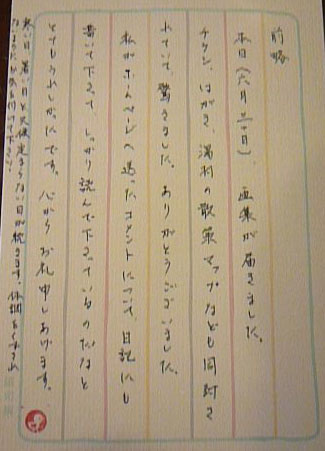 前略
本日(六月三十日)、画集が届きました。
チラシ、はがき、湯村の散策マップなども同封さ
れていて、驚きました。ありがとうございました。
私がホームページへ送ったコメントについて、日記にも
書いて下さって しっかり読んで下さっているのだなと
とてもうれしかったです。心からお礼申しあげます。
寒い日と天候定まらない日が続きます。体調をくずされ
ないように